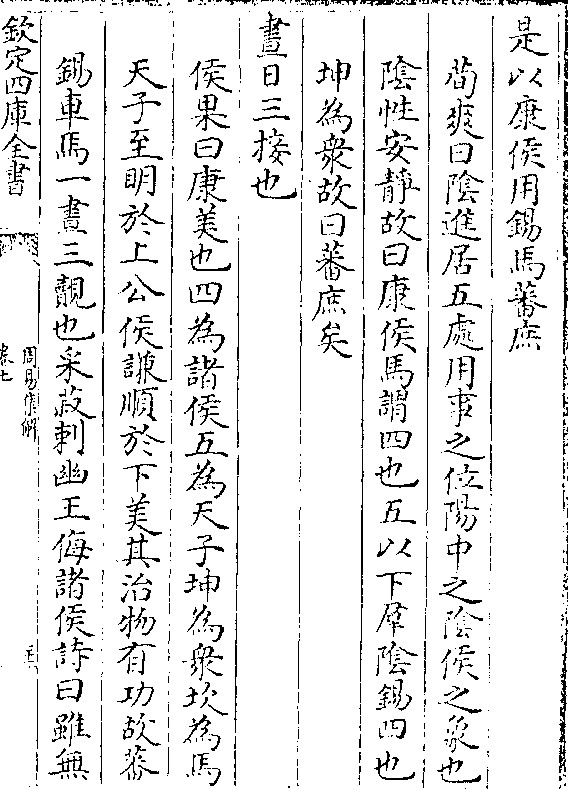 是以康侯用錫馬蕃庶
荀爽曰陰進居五處用事之位陽中之陰侯之象也
陰性安靜故曰康侯馬謂四也五以下羣陰錫四也
坤為衆故曰蕃庶矣
晝日三接也
侯果曰康美也四為諸侯五為天子坤為衆坎為馬
天子至明於上公侯謙順於下美其治物有功故蕃
錫車馬一晝三覿也采菽刺幽王侮諸侯詩曰雖無
欽定四庫全書
周易集解
卷七